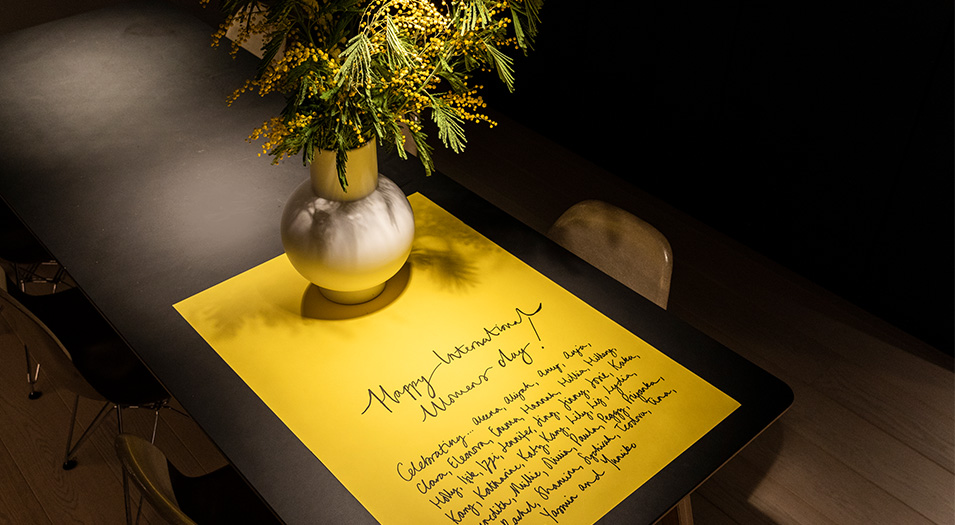 Happy International
Womens day!
Celebrating... Aleena, Aliyah, Amy, Anja,
Clara, Eleonora, Emma, Hannah, Hattie, Hilary,
Holly, Issie, Izzi, Jennifer, Jenny, Jiang, Josie, Kaka,
Kang, Katharine, Katy, Kong, Lily, Liz, Lydia,
Meredith, Millie, Olivia, Paula, Peggy, Priyanka,
Rachel, Sharmina, Teodora, Tara,
Yasmin and Yuriko